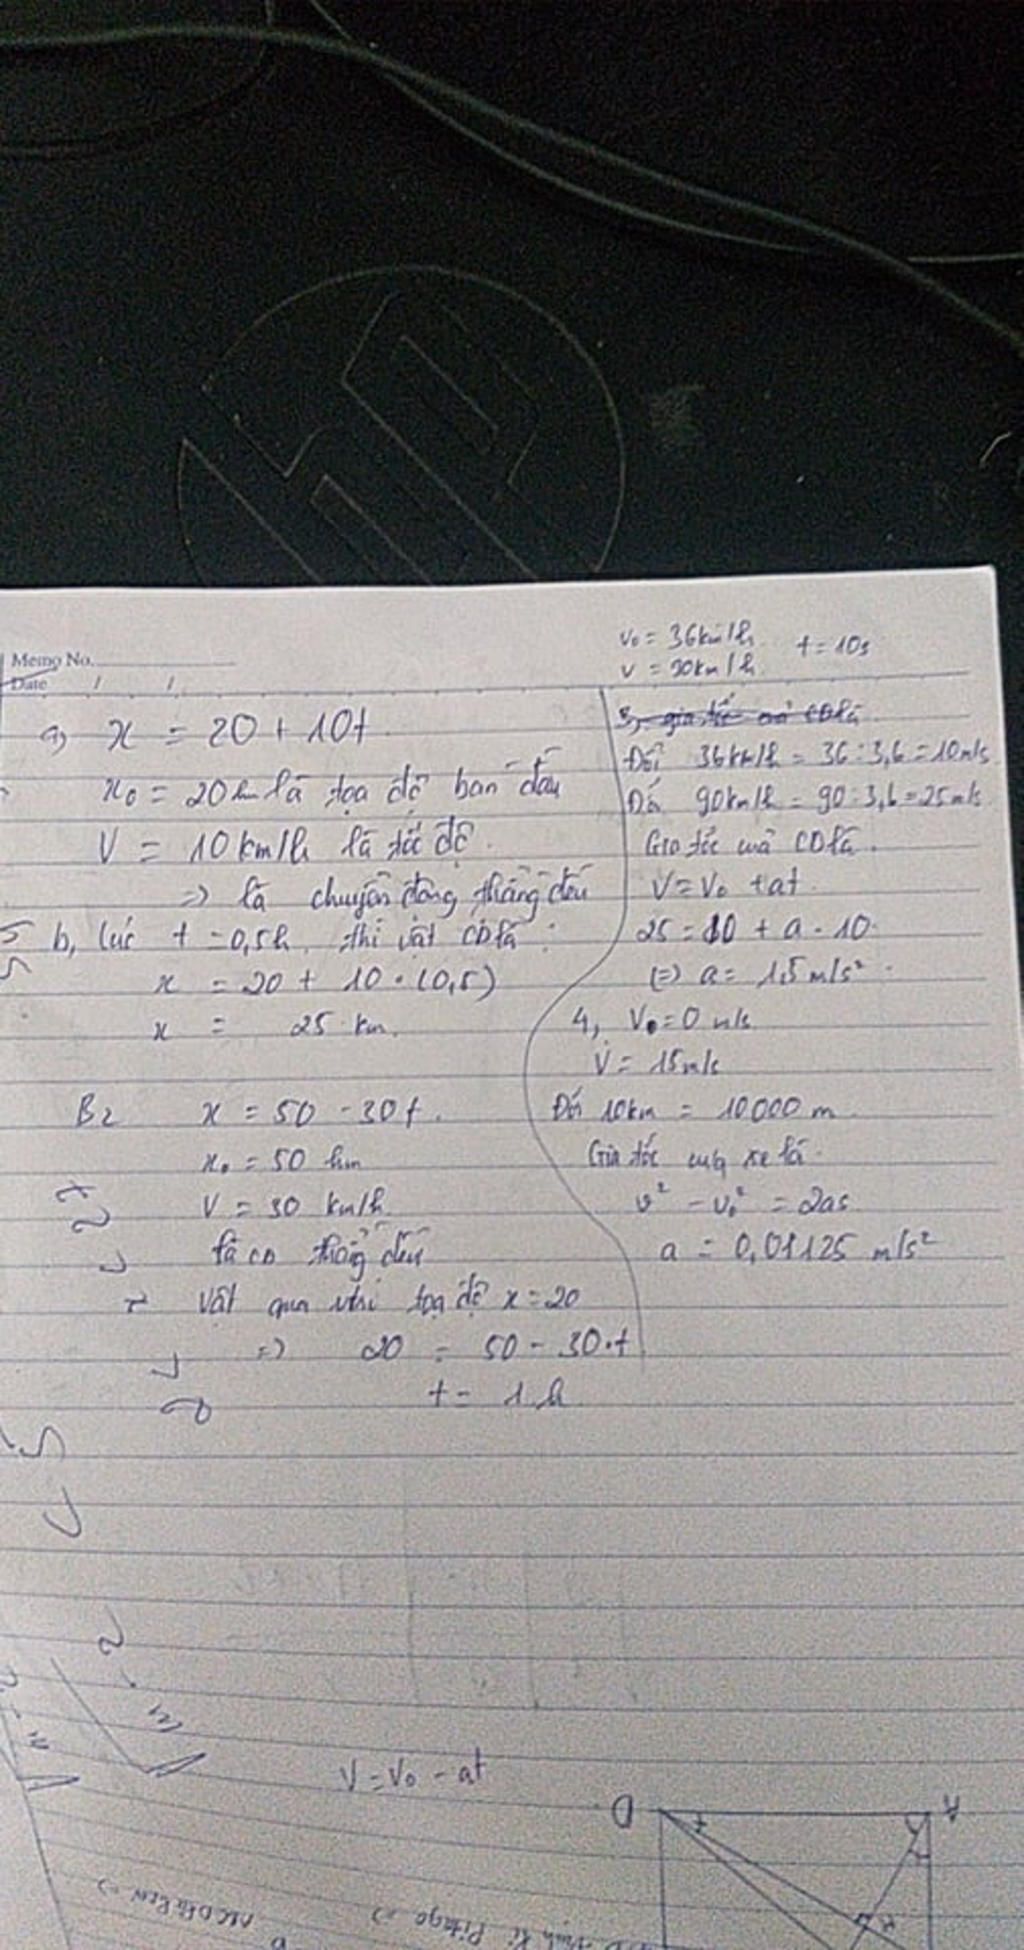 Memo No.
Date / /
a) x = 20 + 10t
x₀ = 20km là tọa độ ban đầu
V = 10 km/h là tốc độ.
=> là chuyển động thẳng đều
b, lúc t = 0,5h, thì vật CĐ là :
x = 20 + 10 . (0,5)
x = 25 km.
B2 x = 50 - 30t.
x₀ = 50 km
V = 30 km/h
là CĐ thẳng đều
Vật qua tọa độ x = 20
=> 20 = 50 - 30.t
t = 1 h
v₀ = 36km/h t = 10s
v = 90km/h
3, gia tốc CĐ là
Đổi 36km/h = 36 : 3,6 = 10m/s
Đổi 90km/h = 90 : 3,6 = 25m/s
Gia tốc CĐ là.
V = V₀ + at
25 = 10 + a . 10
(=) a = 1,5 m/s²
4, V₀ = 0 m/s
V = 15m/s
Đổi 10km = 10000 m
Gia tốc của xe là
v² - v₀² = 2as
a = 0,01125 m/s²
V = V₀ - at
D A
Pitago =>